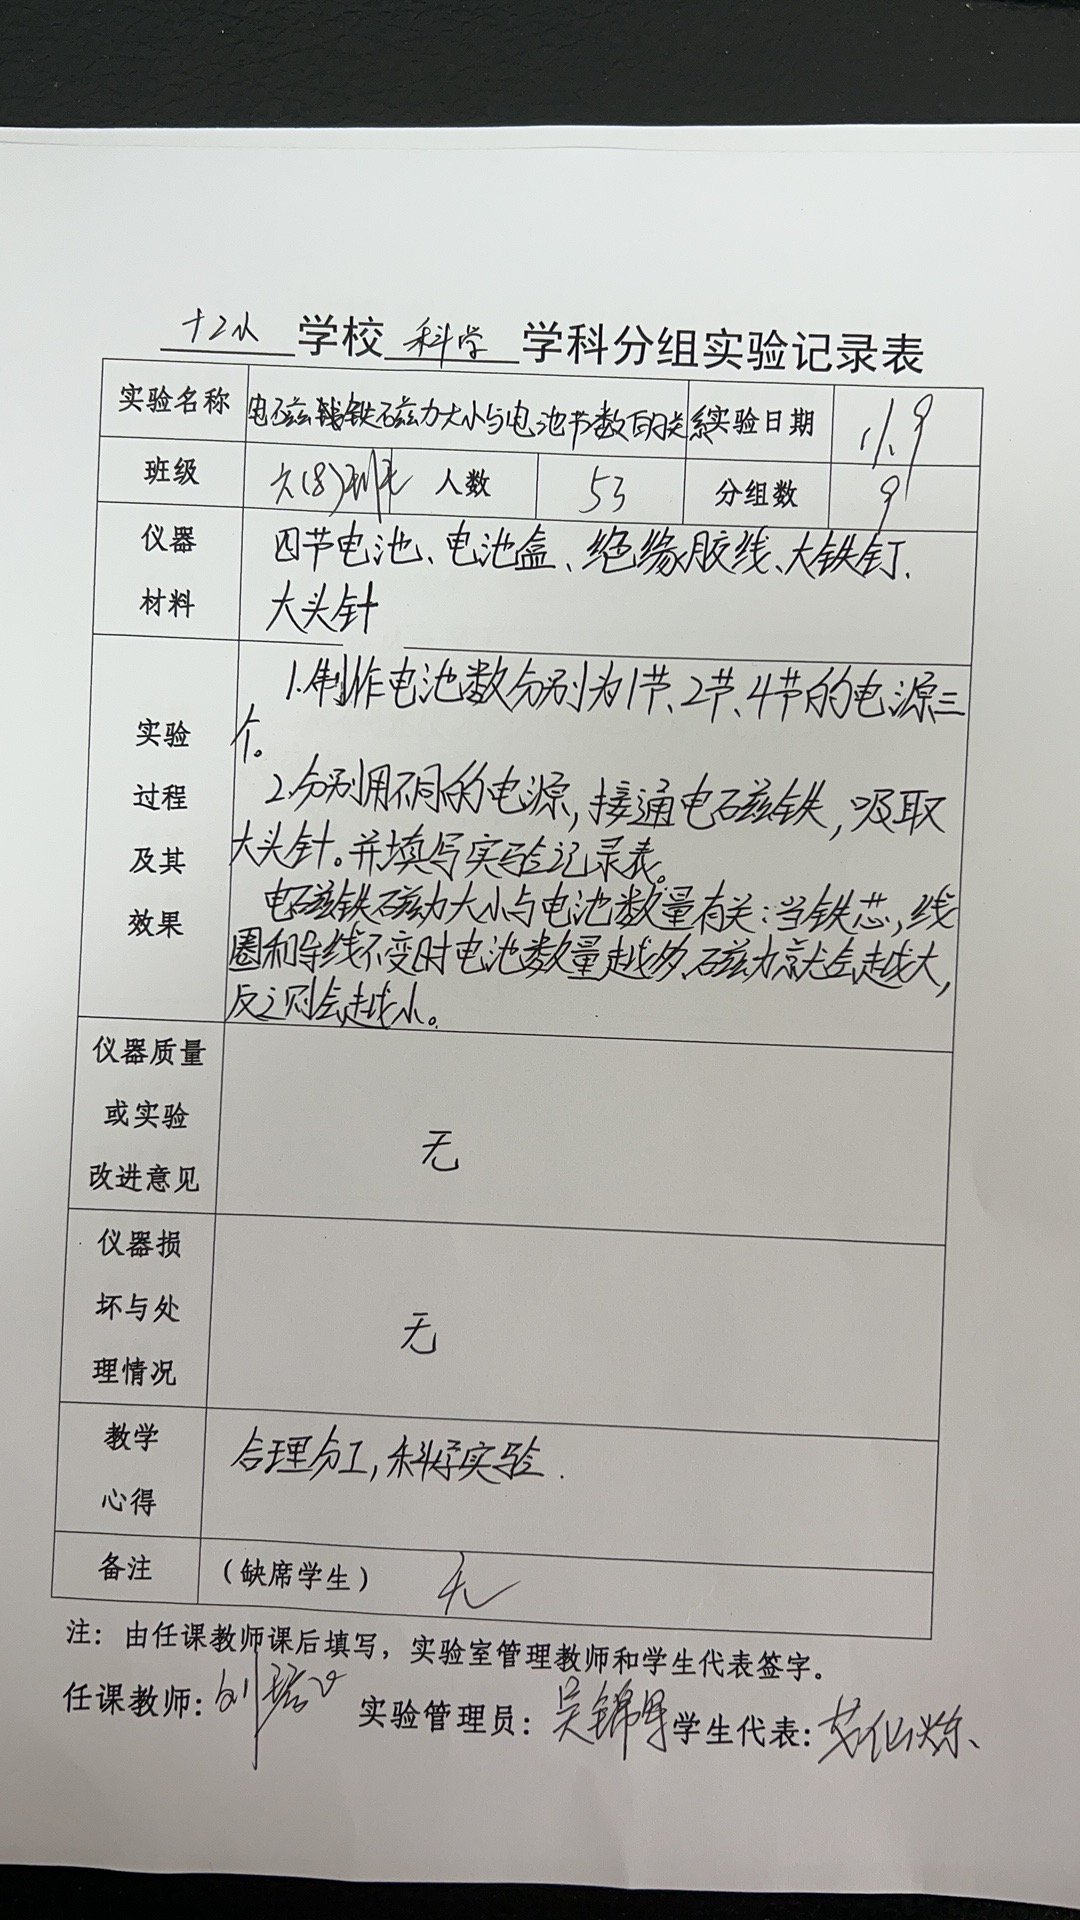 十二小 学校 科学 学科分组实验记录表
实验名称 电磁铁磁力大小与电池节数的关系 实验日期 11.9
班级 六(8)班 人数 53 分组数 9
仪器 四节电池、电池盒、绝缘胶线、大铁钉、
材料 大头针
1.制作电池数分别为1节、2节、4节的电源三
个。
2.分别用不同的电源,接通电磁铁,吸取
大头针。并填写实验记录表。
电磁铁磁力大小与电池数量有关:当铁芯,线
圈和导线不变时电池数量越多,磁力就会越大,
反之则会越小。
实验
过程
及其
效果
仪器质量
或实验
改进意见
无
仪器损
坏与处
理情况
无
教学
心得
合理分工,科学实验.
备注 (缺席学生) 无
注:由任课教师课后填写,实验室管理教师和学生代表签字。
任课教师: 刘 实验管理员: 吴锦 学生代表: